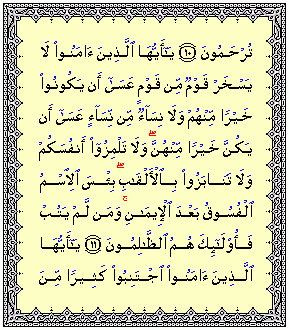 تُرْحَمُونَ ١٠ يَـٰٓأَيُّهَا ٱلَّذِينَ ءَامَنُوا۟ لَا
يَسْخَرْ قَوْمٌ مِّن قَوْمٍ عَسَىٰٓ أَن يَكُونُوا۟
خَيْرًا مِّنْهُمْ وَلَا نِسَآءٌ مِّن نِّسَآءٍ عَسَىٰٓ أَن
يَكُنَّ خَيْرًا مِّنْهُنَّ ۖ وَلَا تَلْمِزُوٓا۟ أَنفُسَكُمْ
وَلَا تَنَابَزُوا۟ بِٱلْأَلْقَـٰبِ ۖ بِئْسَ ٱلِٱسْمُ
ٱلْفُسُوقُ بَعْدَ ٱلْإِيمَـٰنِ ۚ وَمَن لَّمْ يَتُبْ
فَأُو۟لَـٰٓئِكَ هُمُ ٱلظَّـٰلِمُونَ ١١ يَـٰٓأَيُّهَا
ٱلَّذِينَ ءَامَنُوا۟ ٱجْتَنِبُوا۟ كَثِيرًا مِّنَ